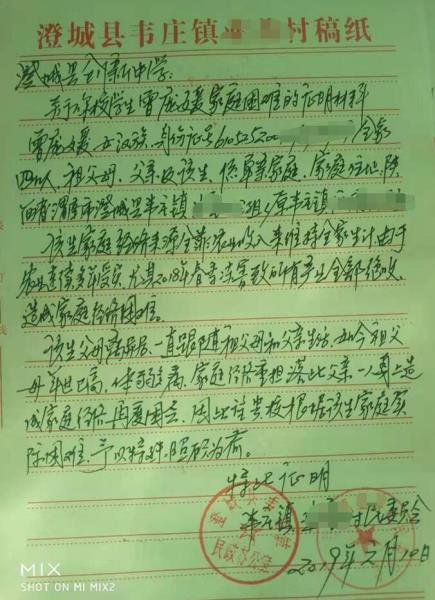 澄城县韦庄镇 村稿纸
澄城县 中学:
关于在校学生雷 媛家庭困难的证明材料
雷 媛,女,汉族,身份证号610525200 ,全家
四口人,祖父母、父亲及该生,系单亲家庭,家庭住址:陕
西省渭南市澄城县韦庄镇 组(原韦庄镇
该生家庭经济来源全靠农业收入来维持全家生计,由于
农业连续多年受灾,尤其2018年春季冻害致所有产业全部绝收,
造成家庭经济困难。
该生父母离异后,一直跟随祖父母和父亲生活,如今祖父
母年已高,体弱多病,家庭经济重担落此父亲一人肩上,造
成家庭经济再度困难,因此请贵校根据该生家庭实
际困难,予以特殊照顾为荷。
特此证明
韦庄镇 村民委员会
2019年2月10日
民政办公室
MIX
SHOT ON MI MIX2